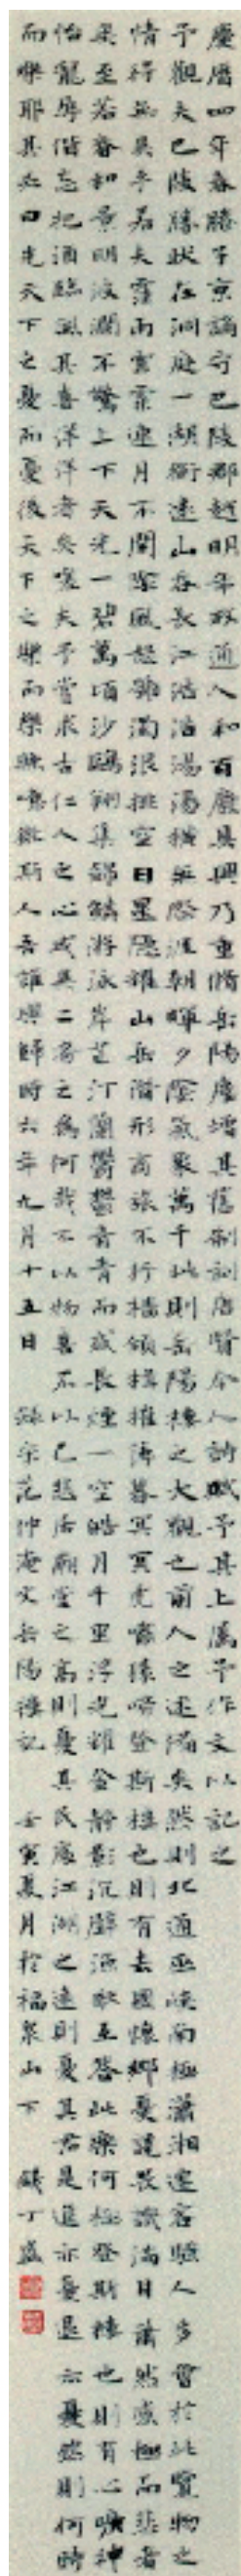 慶曆四年春滕子京謫守巴陵郡越明年政通人和百廢具興乃重脩岳陽樓增其舊制刻唐賢今人詩賦于其上屬予作文以記之
予觀夫巴陵勝狀在洞庭一湖銜遠山吞長江浩浩湯湯橫無際涯朝暉夕陰氣象萬千此則岳陽樓之大觀也前人之述備矣然則北通巫峽南極瀟湘遷客騷人多會於此覽物之
情得無異乎若夫霪雨霏霏連月不開陰風怒號濁浪排空日星隱耀山岳潛形商旅不行檣傾楫摧薄暮冥冥虎嘯猿啼登斯樓也則有去國懷鄉憂讒畏譏滿目蕭然感極而悲者
矣至若春和景明波瀾不驚上下天光一碧萬頃沙鷗翔集錦鱗游泳岸芷汀蘭鬱鬱青青而或長煙一空皓月千里浮光耀金靜影沉璧漁歌互答此樂何極登斯樓也則有心曠神
怡寵辱偕忘把酒臨風其喜洋洋者矣嗟夫予嘗求古仁人之心或異二者之為何哉不以物喜不以己悲居廟堂之高則憂其民處江湖之遠則憂其君是進亦憂退亦憂然則何時
而樂耶其必曰先天下之憂而憂後天下之樂而樂歟噫微斯人吾誰與歸時六年九月十五日 錄宋范仲淹文岳陽樓記 壬寅夏月於福泉山下 丁盛